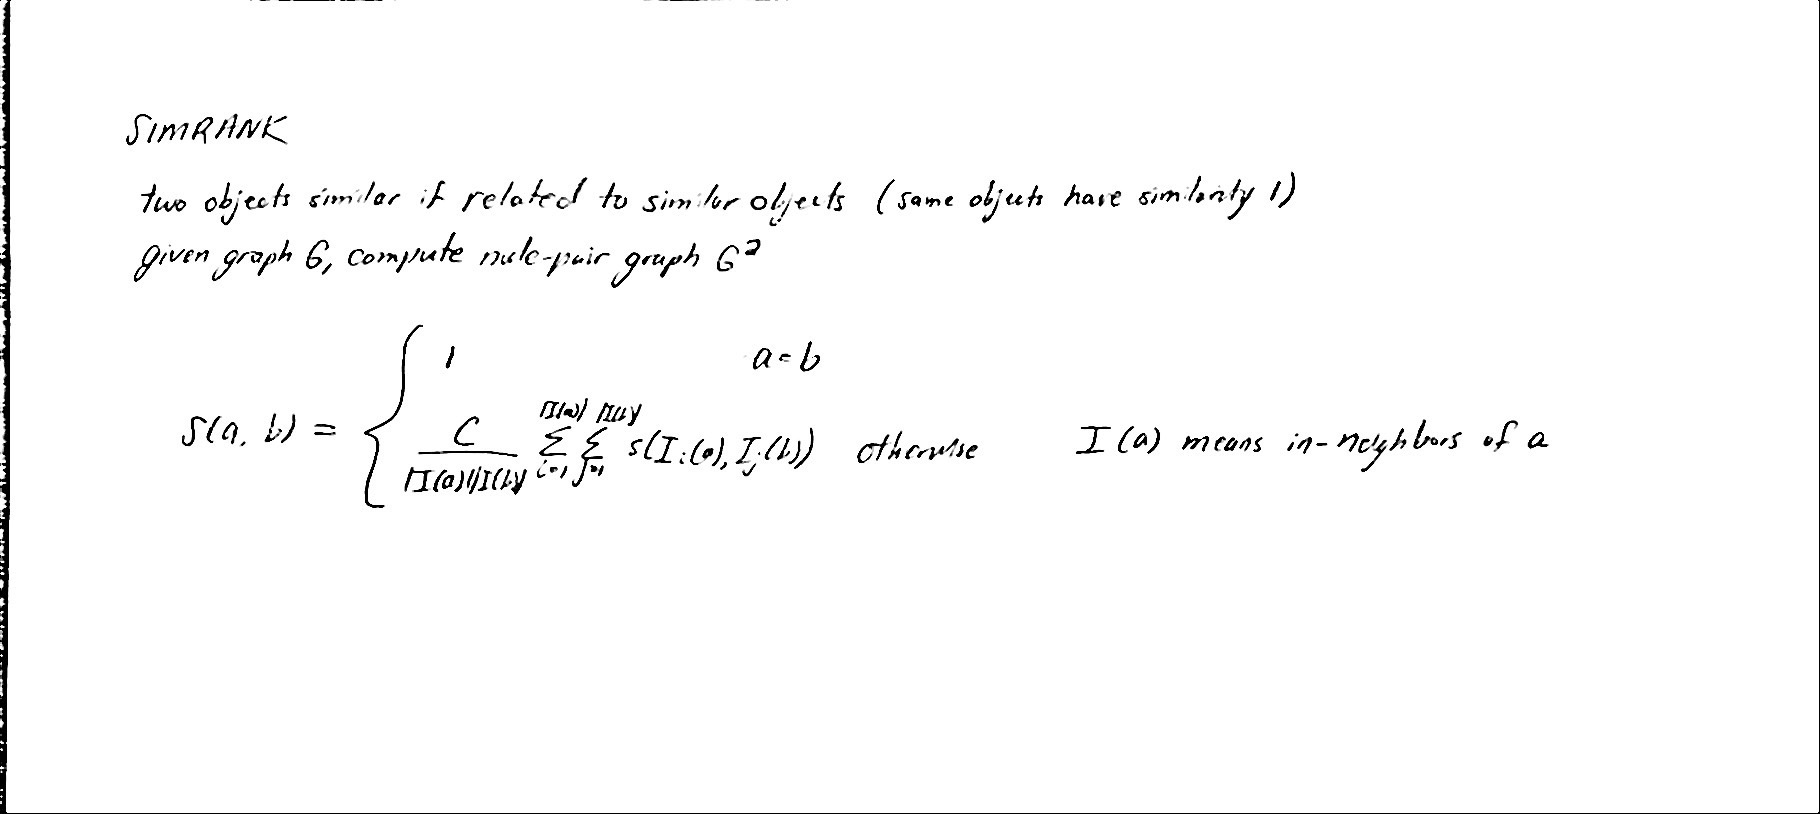 SIMRANK
two objects similar if related to similar objects (same objects have similarity 1)
given graph G, compute node-pair graph G²
1 a=b
s(a, b) = { C / |I(a)||I(b)| ∑_{i=1}^{|I(a)|} ∑_{j=1}^{|I(b)|} s(I_i(a), I_j(b)) otherwise I(a) means in-neighbors of a